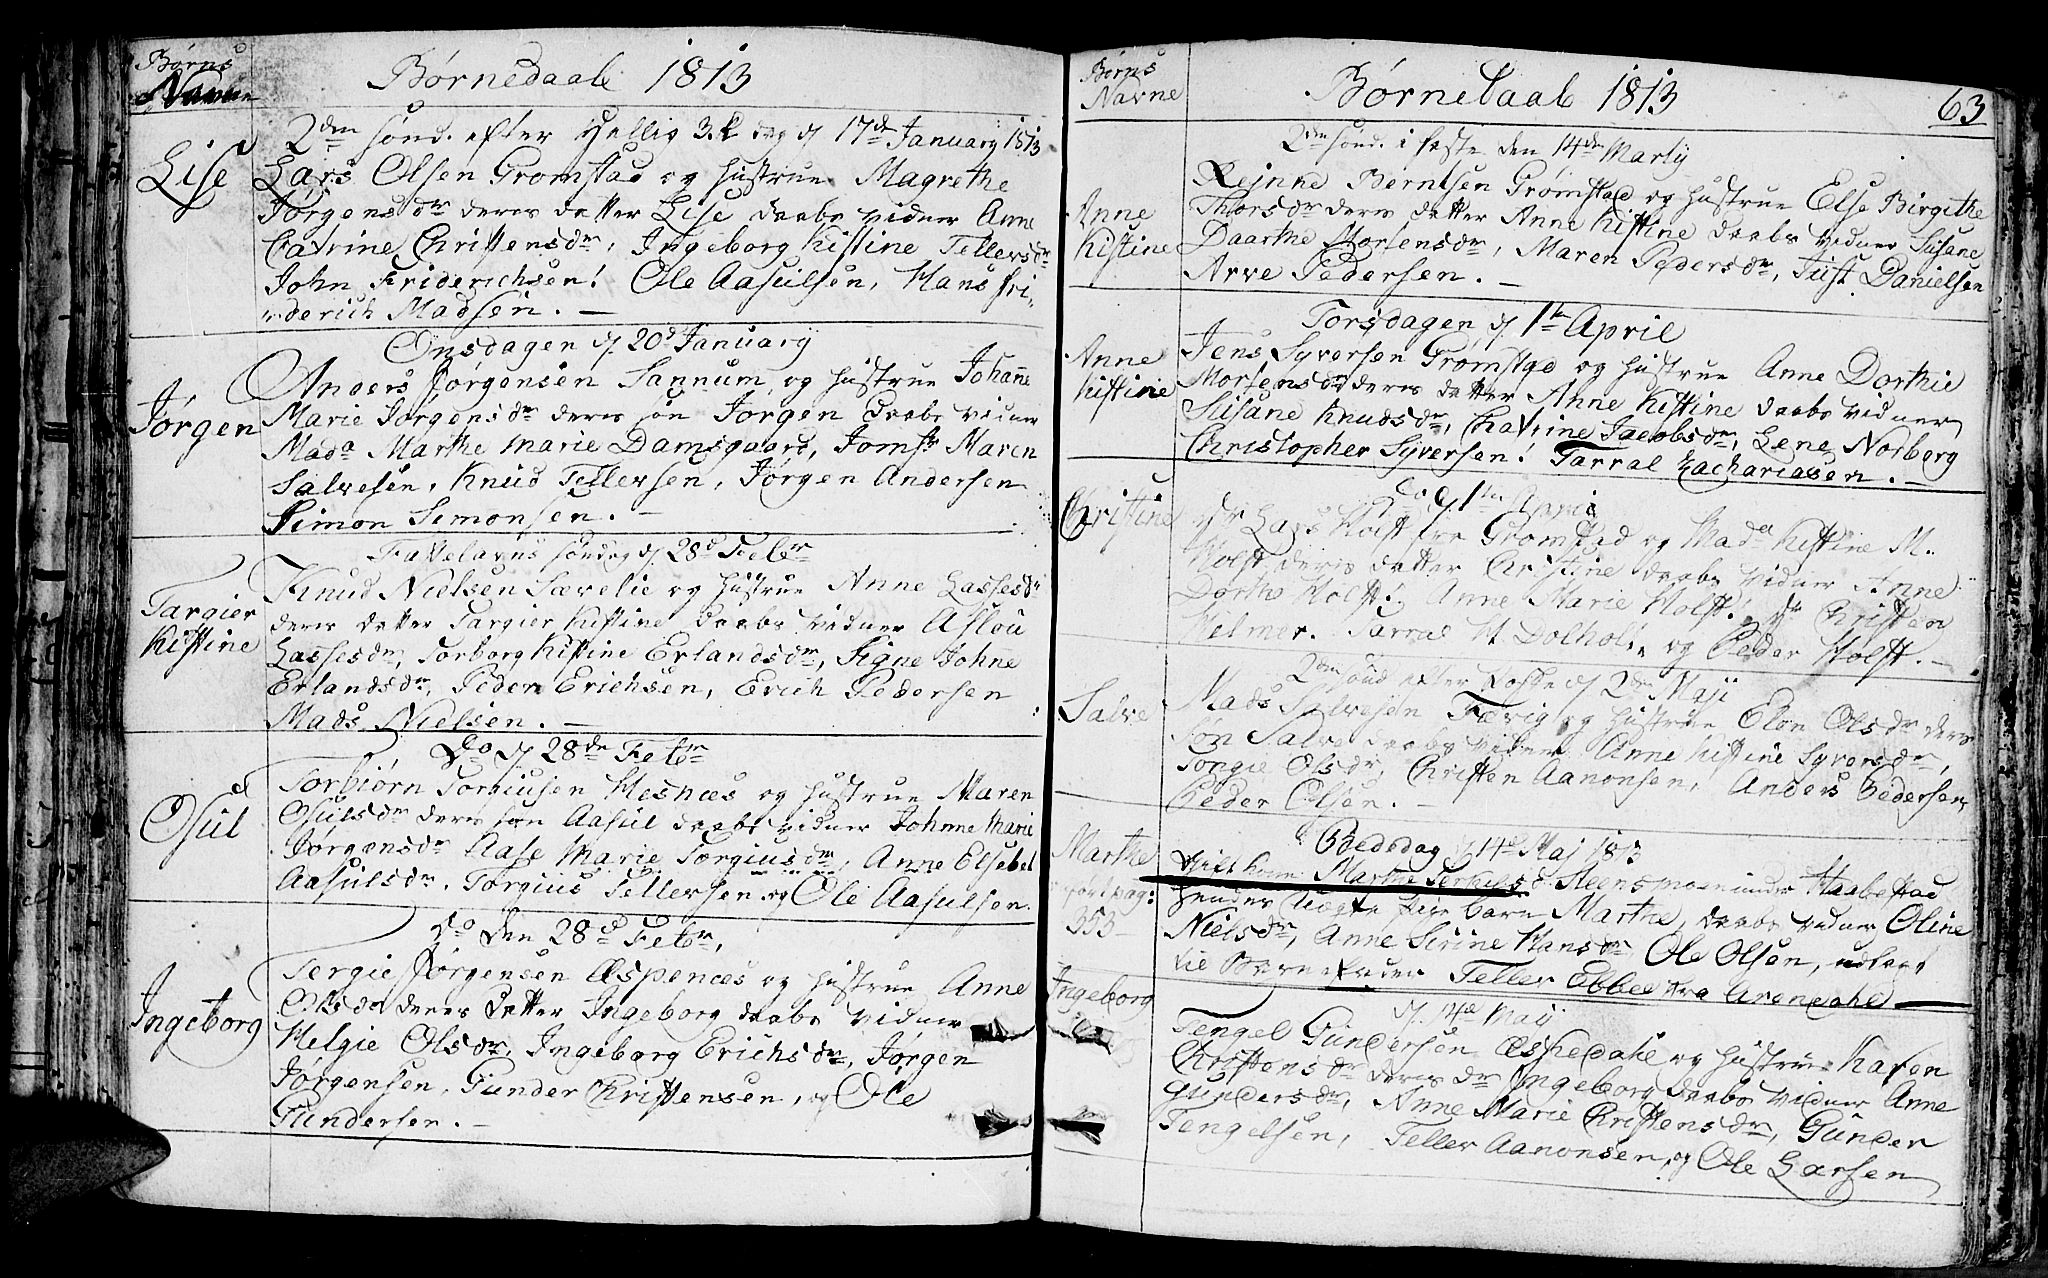 Børns
Navne
Børnedaab 1813
2den sønd. efter Hellig 3 k dag d. 17de January 1813
Lise
Lars Olsen Gromstad og hustrue Magrethe
Jørgensdr deres datter Lise daabs vidner Anne
Catrine Christensdr, Ingeborg Kistine Tellersdr
John Friderichsen! Ole Aasulsen, Hans Fri-
derich Madsen. —
Onsdagen d. 20d January
Jørgen
Anders Jørgensen Sannum og hustrue Johañe
Marie Jørgensdr deres søn Jørgen daabs vidner
Mada Marthe Marie Damsgaard, Jomfr Maren
Salvesen, Knud Tellefsen, Jørgen Andersen
Simon Simonsen. —
Fastelavns søndag d. 28d Febr
Targier
Kistine
Knud Nielsen Sævelie og hustrue Anne Lassesdr
deres datter Targier Kistine daabs vidner Aslou
Lassesdr, Torborg Kistine Erlandsdr, Signe Johne
Erlandsdr, Peder Erichsen, Erich Pedersen
Mads Nielsen. —
Do d. 28de Febr
Osul
Torbiørn Torgiusen Hesnæs og hustrue Maren
Osulsdr deres søn Aasul daabs vidner Johnne Marie
Jørgensdr Aase Marie Torgiusdr, Anne Elsebet
Aasulsdr, Torgius Tellefsen og Ole Aasulsen.
do den 28d Febr,
Ingeborg
Tergie Jørgensen Æspenæs og hustrue Anne
Olsdr deres datter Ingeborg daabs vidner
Helgie Olsdr, Ingeborg Erichsdr, Jørgen
Jørgensen, Gunder Christensen, og Ole
Gundersen. —
Børns
Navne
Børnedaab 1813
63
2den sønd. i faste den 14de Marty
Anne
Kistine
Rejnne Berntsen Grømstad og hustrue Else Birgithe
Thorsdr deres datter Anne Kistine daabs vidner Susane
Daarthe Mortensdr, Maren Pedersdr, Just Danielsen
Arve Pedersen. —
Torsdagen d. 1te April
Anne
Kistine
Jens Syversen Grømstad og hustrue Anne Dorthie
Mortensdr deres datter Anne Kistine daabs vidner
Susane Knudsdr, Chatrine Jacobsdr, Lene Norberg
Christopher Syversen! Tarral Zachariasen. —
Do d. 1te April
Christine
Hr Lars Holst fra Gromstad og Mada Kistine M.
Holst deres datter Christine daabs vidner Anne
Dorthe Holst! Anne Marie Holst! Hr Christen
Helmer. Tarral H. og Peder Holst. —
2den sønd efter Paaske d. 2den Maji
Salve
Mads Salvesen Færvig og hustrue Elen Olsdr deres
søn Salve daabs vidner Anne Kistine Syversdr,
Tongie Olsdr, Christen Aanonsen, Anders Pedersen,
Peder Olsen. —
Bededag d. 14d Maj 1813
Marthe
pag:
353
Marthe Terkelsd. Steensmoen under Haabestad
hendes uægte pige barn Marthe, daabs vidner Oline
Nielsdr, Anne Sirine Hansdr Ole Olsen, udlagt
til Barnefader Teller Ebbel fra Arendahl
d. 14d May
Ingeborg
Tengel Gundersen Æspedahl og hustrue Karen
Christensdr deres dr Ingeborg daabs vidner Anne
Gundersdr, Anne Marie Christensdr, Gunder
Tengelsen, Teller Aanonsen, og Ole Larsen